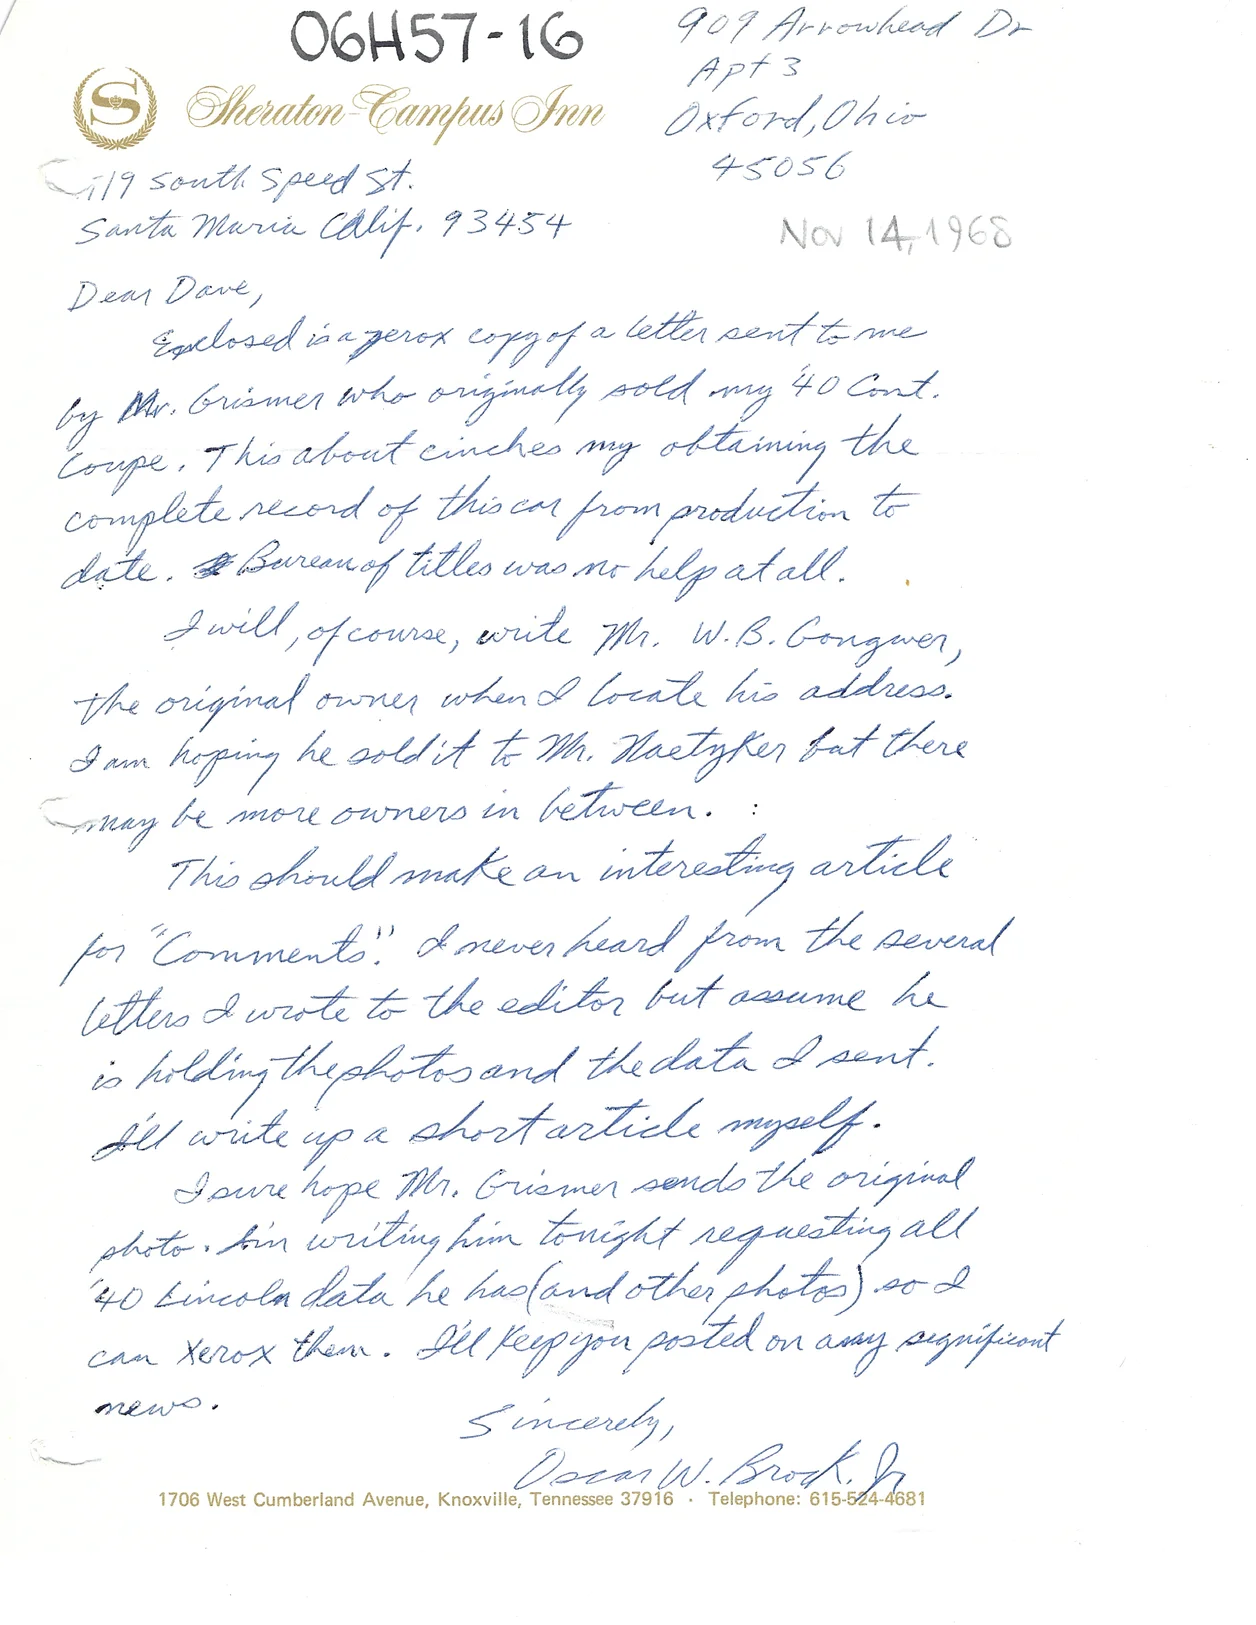 06H57-16
909 Arrowhead Dr
Apt 3
Oxford, Ohio
45056
S
Sheraton-Campus Inn
719 South Speed St.
Santa Maria Calif. 93454
Nov 14, 1968
Dear Dave,
Enclosed is a xerox copy of a letter sent to me
by Mr. Grismer who originally sold my '40 Cont.
Coupe. This about cinches my obtaining the
complete record of this car from production to
date. Bureau of titles was no help at all.
I will, of course, write Mr. W.B. Gongwer,
the original owner when I locate his address.
I am hoping he sold it to Mr. Naetzker but there
may be more owners in between.
This should make an interesting article
for "Comments". I never heard from the several
letters I wrote to the editor but assume he
is holding the photos and the data I sent.
I'll write up a short article myself.
I sure hope Mr. Grismer sends the original
photo. I'm writing him tonight requesting all
'40 Lincoln data he has (and other photos) so I
can Xerox them. I'll keep you posted on any significant
news.
Sincerely,
Oscar W. Brock, Jr
1706 West Cumberland Avenue, Knoxville, Tennessee 37916 · Telephone: 615-524-4681